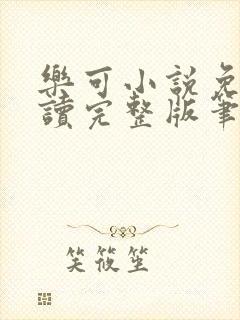 樂可小説免
讀完整版筆
笑筱笙